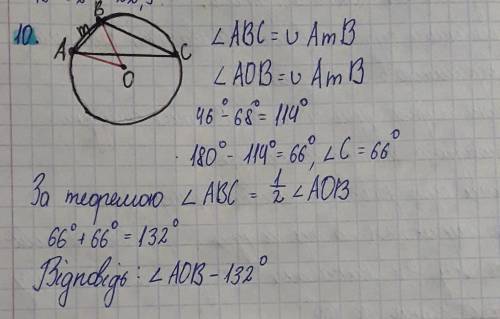 10.
B
m
A
C
O
∠ABC = ∪ AmB
∠AOB = ∪ AmB
46° - 68° = 114°
180° - 114° = 66°, ∠C = 66°
За теоремою ∠ABC = 1/2 ∠AOB
66° + 66° = 132°
Відповідь: ∠AOB - 132°